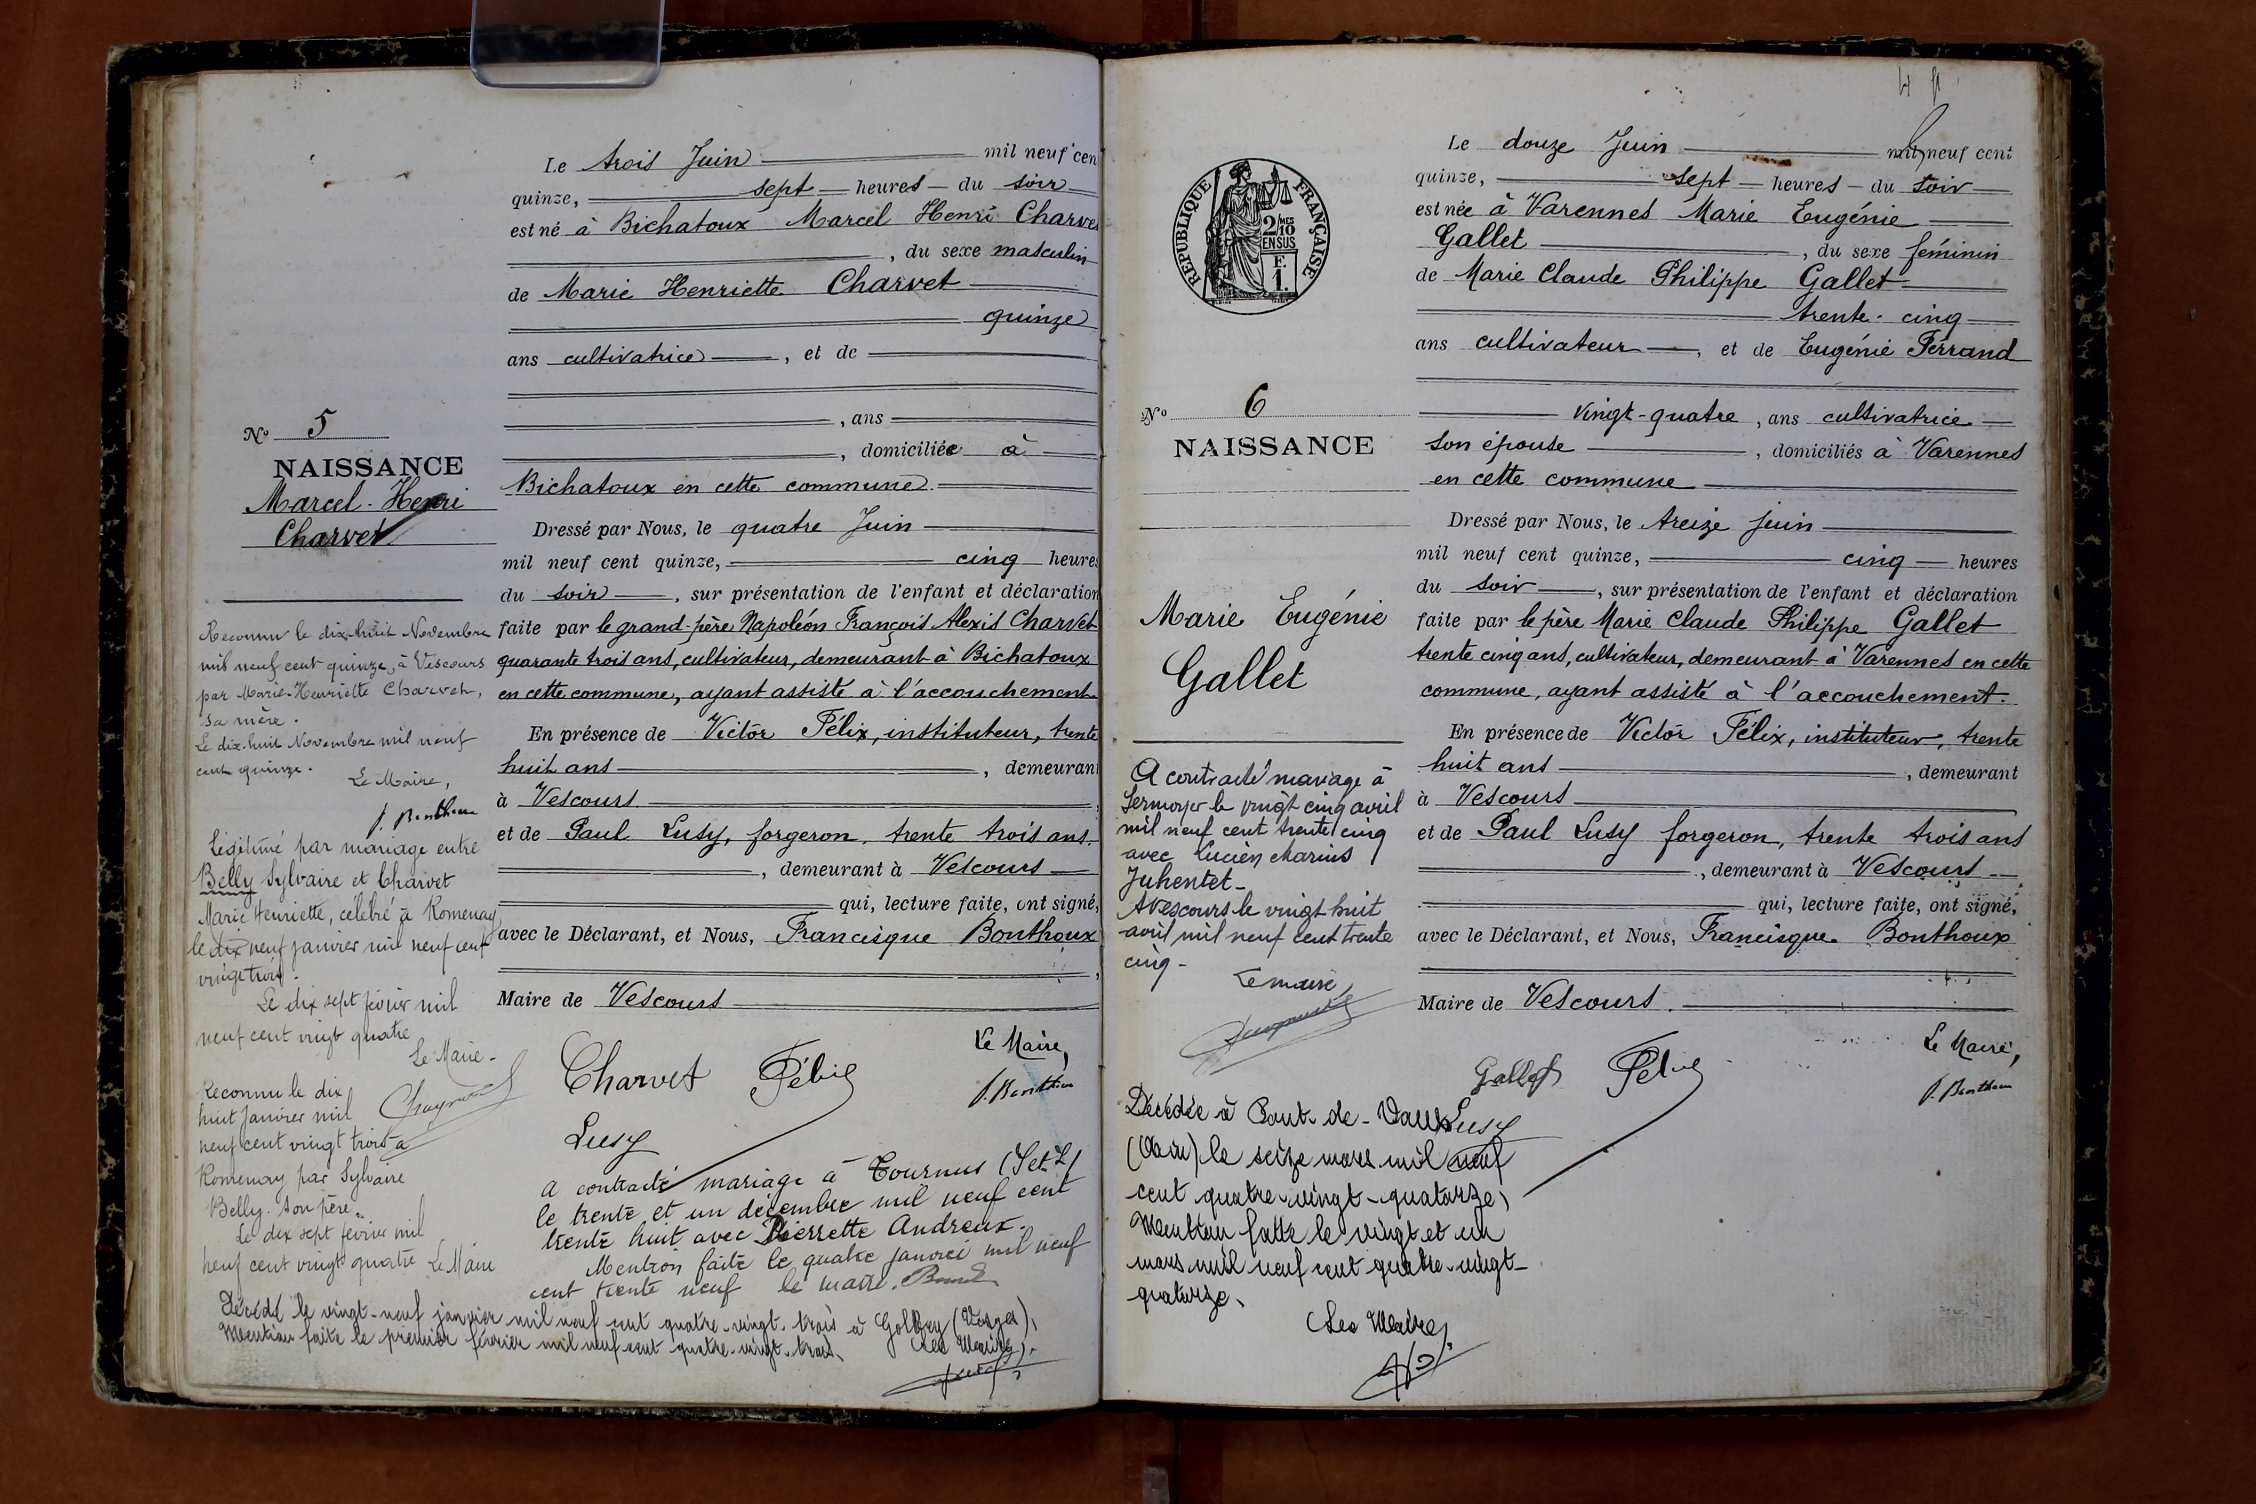 Le trois Juin mil neuf cen
quinze, sept heures du soir
est né à Bichatoux Marcel Henri Charve
, du sexe masculin
de Marie Henriette Charvet
quinze
ans cultivatrice , et de
, ans
, domiciliée à
Bichatoux en cette commune
Dressé par Nous, le quatre Juin
mil neuf cent quinze, cinq heures
du soir , sur présentation de l'enfant et déclaration
faite par le grand-père Napoléon François Alexis Charvet
quarante trois ans, cultivateur, demeurant à Bichatoux
en cette commune, ayant assisté à l'accouchement
En présence de Victor Félix, instituteur, trente
huit ans , demeurant
à Vescours
et de Paul Lusy, forgeron, trente trois ans.
, demeurant à Vescours
qui, lecture faite, ont signé,
avec le Déclarant, et Nous, Francisque Bonthoux
Maire de Vescours
Le Maire,
Charvet Félix
F. Bonthoux
Lusy
N° 5
NAISSANCE
Marcel-Henri
Charvet
Reconnu le dix-huit Novembre
mil neuf cent quinze, à Vescours
par Marie-Henriette Charvet,
sa mère.
Le dix-huit Novembre mil neuf
cent quinze.
Le Maire,
F. Bonthoux
Légitimé par mariage entre
Belly Sylvaire et Charvet
Marie Henriette, célébré à Romenay
le dix neuf janvier mil neuf cent
vingt trois.
Le dix sept février mil
neuf cent vingt quatre
Le Maire
Reconnu le dix
huit Janvier mil
neuf cent vingt trois a
Romenay par Sylvaire
Belly. son père.
Le dix sept février mil
neuf cent vingt quatre Le Maire
A contracté mariage à Tournus (S et L)
le trente et un décembre mil neuf cent
trente huit avec Pierrette Andreux.
Mention faite le quatre janvier mil neuf
cent trente neuf le maire.
Décédé le vingt-neuf janvier mil neuf cent quatre-vingt-trois à Golbey (Vosges),
Mention faite le premier février mil neuf cent quatre-vingt-trois,
Le Maire,
Le douze Juin mil neuf cent
quinze, sept heures du soir
est née à Varennes Marie Eugénie
Gallet , du sexe féminin
de Marie Claude Philippe Gallet
trente-cinq
ans cultivateur , et de Eugénie Ferrand
vingt-quatre , ans cultivatrice
son épouse , domiciliés à Varennes
en cette commune
Dressé par Nous, le treize juin
mil neuf cent quinze, cinq heures
du soir , sur présentation de l'enfant et déclaration
faite par le père Marie Claude Philippe Gallet
trente cinq ans, cultivateur, demeurant à Varennes en cette
commune, ayant assisté à l'accouchement.
En présence de Victor Félix, instituteur, trente
huit ans , demeurant
à Vescours
et de Paul Lusy forgeron, trente trois ans
, demeurant à Vescours
qui, lecture faite, ont signé,
avec le Déclarant, et Nous, Francisque Bonthoux
Maire de Vescours.
Le Maire,
Gallet Félix
F. Bonthoux
Lusy
RÉPUBLIQUE FRANÇAISE
2/10 MES
EN SUS
F.
1.
N° 6
NAISSANCE
Marie Eugénie
Gallet
A contracté mariage à
Sermoyer le vingt cinq avril
mil neuf cent trente cinq
avec Lucien Marius
Juhentet
A Vescours le vingt huit
avril mil neuf cent trente
cinq -
Le maire,
Décédée à Pont-de-Vaux
(Ain) le seize mars mil neuf
cent quatre-vingt-quatorze,
Mention faite le vingt et un
mars mil neuf cent quatre-vingt-
quatorze,
Le Maire,